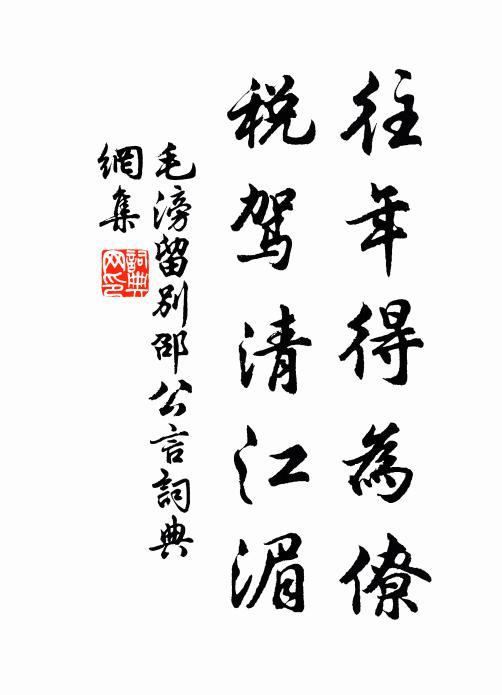 往年得為僚
税驾清江湄
毛滂留別邵公言詞典
網集
詞典
网印